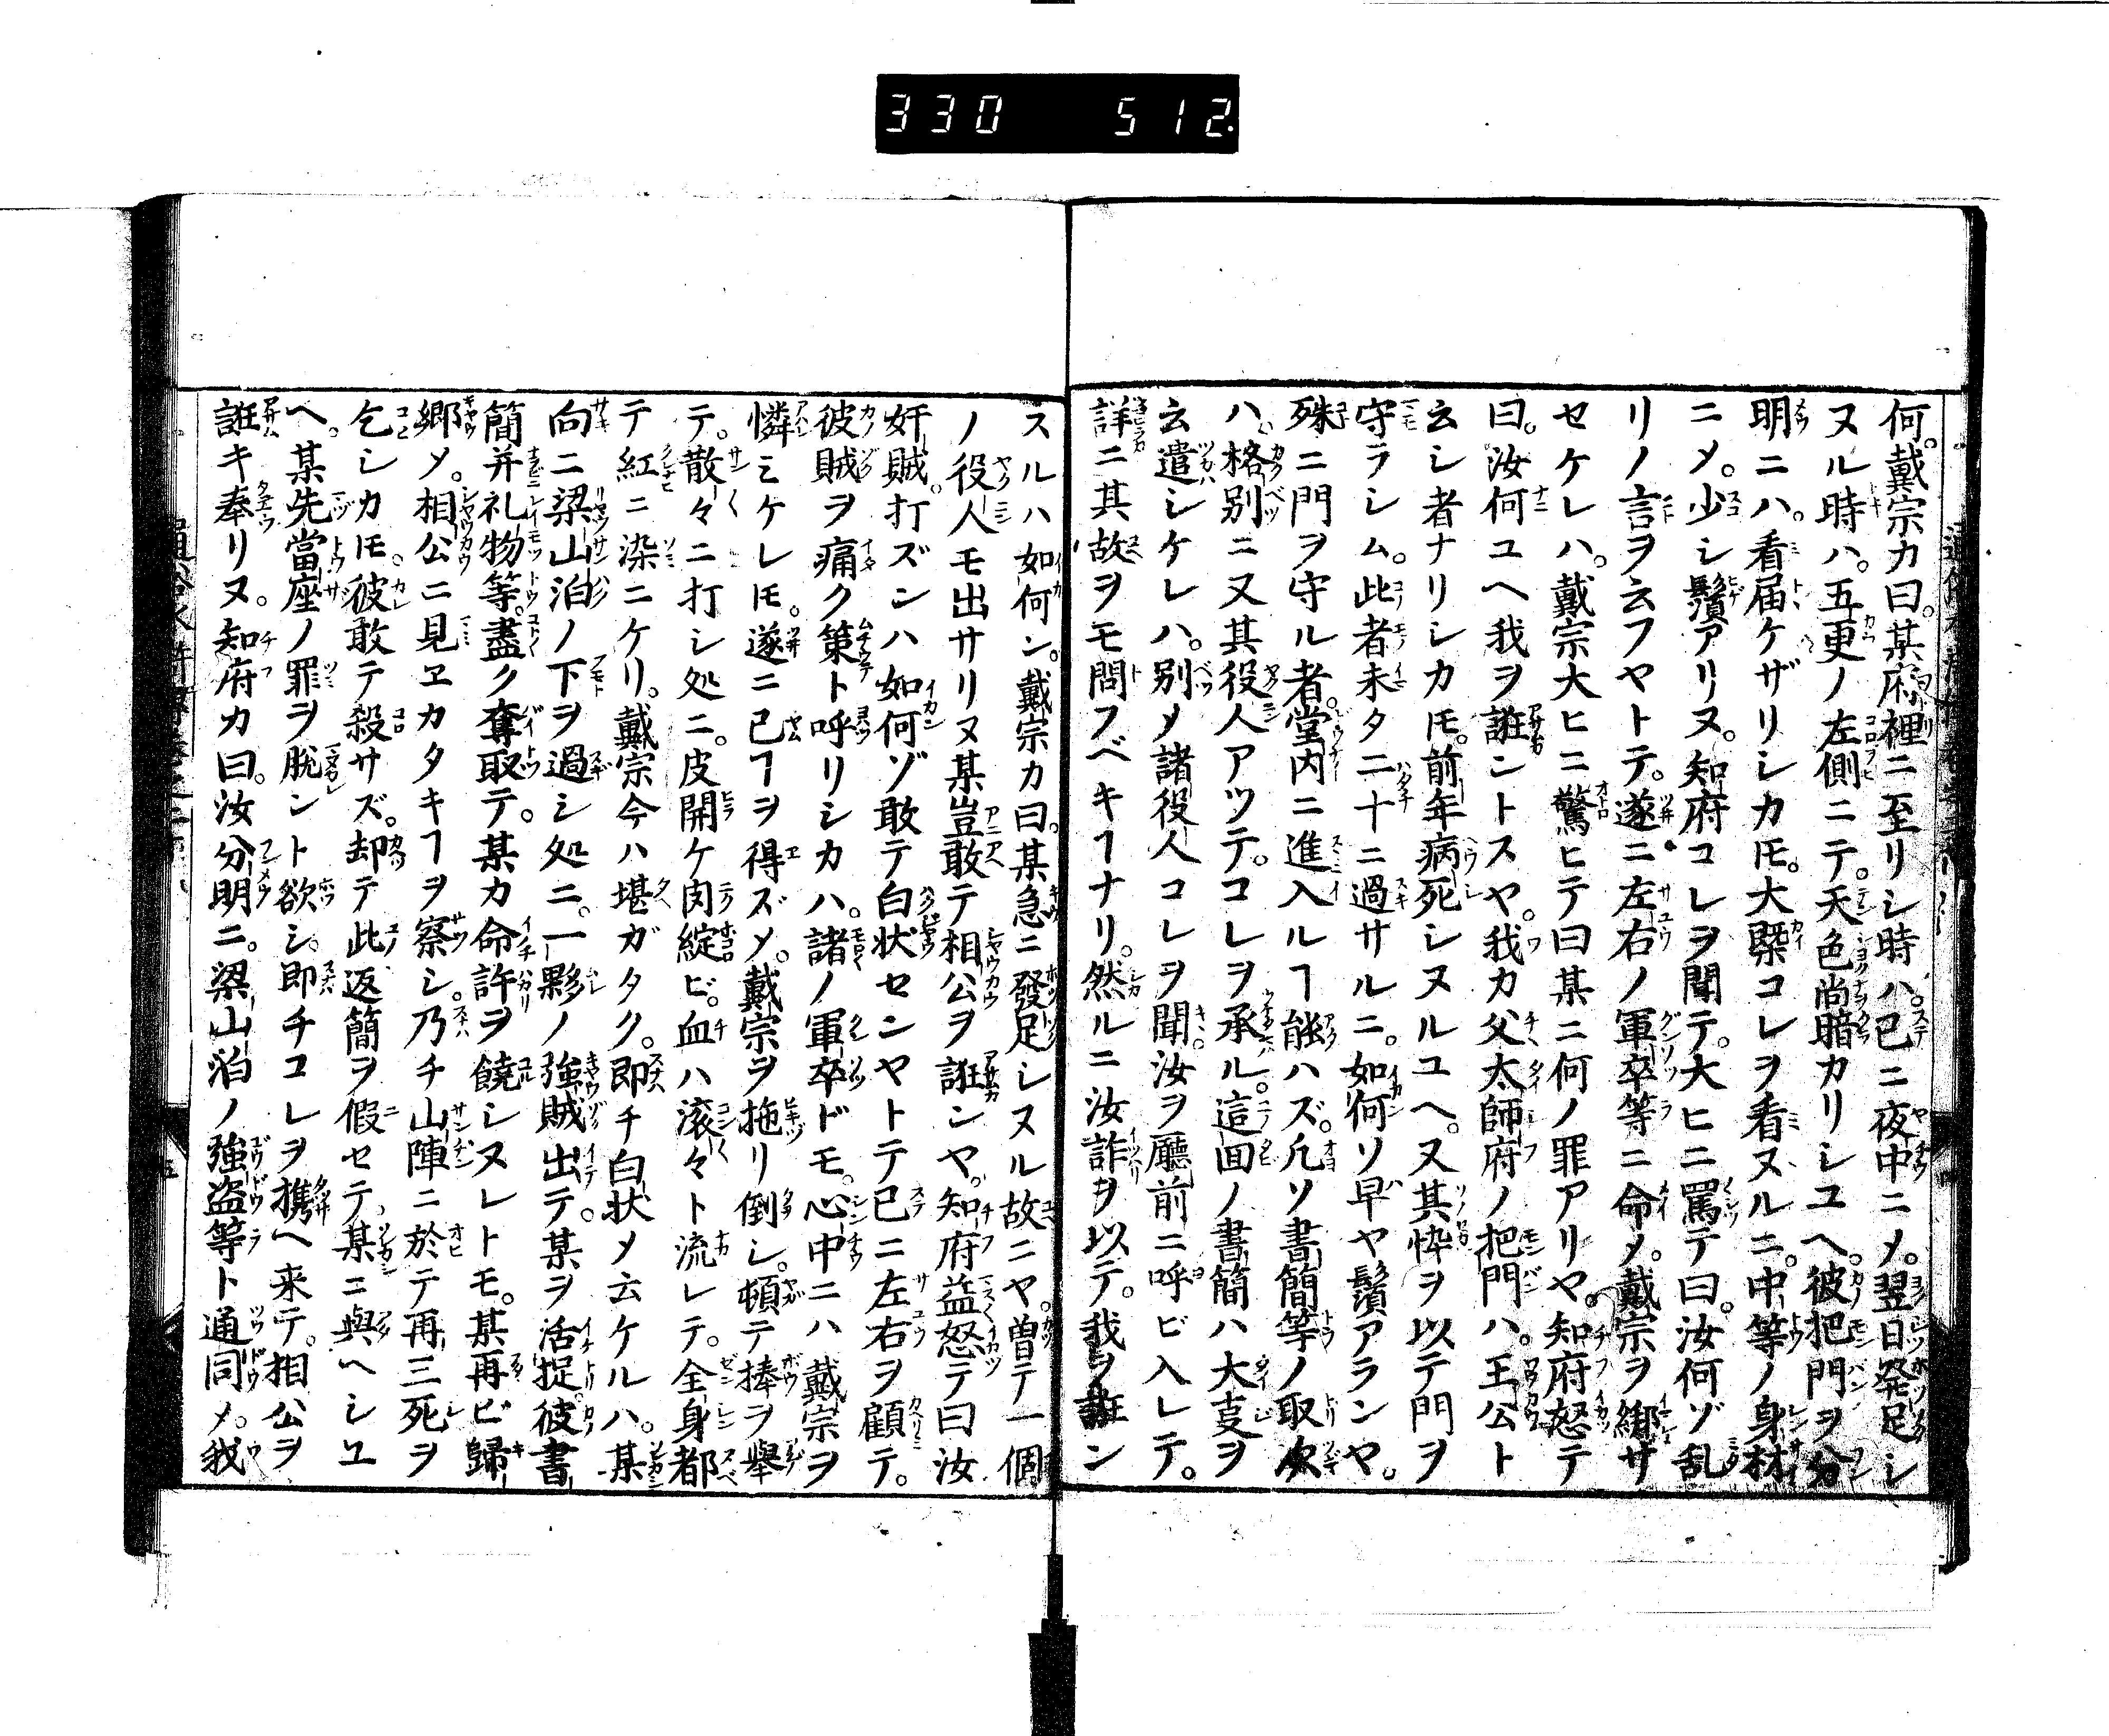 330 512
何。戴宗カ曰。某府裡ニ至リシ時ハ。已ニ夜中ニメ。翌日発足シ
ヌル時ハ。五更ノ左側ニテ。天色尚暗カリシユヘ。彼把門ヲ分
明ニハ。看届ケザリシカ𪜈。大槩コレヲ看ヌルニ。中等ノ身材
ニメ。少シ鬚アリヌ。知府コレヲ聞テ。大ヒニ罵テ曰。汝何ゾ乱
リノ言ヲ云フヤトテ。遂ニ左右ノ軍卒等ニ命メ。戴宗ヲ綁サ
セケレハ。戴宗大ヒニ驚ヒテ曰某ニ何ノ罪アリヤ。知府怒テ
曰。汝何ユヘ我ヲ誑ントスヤ。我カ父太師府ノ把門ハ。王公ト
云シ者ナリシカ𪜈。前年病死シヌルユヘ。又其忰ヲ以テ門ヲ
守ラシム。此者未タ二十ニ過サルニ。如何ソ早ヤ鬚アランヤ。
殊ニ門ヲ守ル者。堂内ニ進入ルヿ能ハズ。凡ソ書簡等ノ取次
ハ。格別ニ又其役人アツテ。コレヲ承ル。這回ノ書簡ハ大㕝ヲ
云遣シケレハ。別メ諸役人コレヲ聞汝ヲ廳前ニ呼ビ入レテ。
詳ニ其故ヲモ問フベキヿナリ。然ルニ汝詐ヲ以テ。我ヲ誑ン
スルハ如何ン。戴宗カ曰。某急ニ發足シヌル故ニヤ。曽テ一個
ノ役人モ出サリヌ某豈敢テ相公ヲ誑ンヤ。知府益怒テ曰汝
奸賊。打ズンハ如何ゾ敢テ白状センヤトテ已ニ左右ヲ顧テ。
彼賊ヲ痛ク箠ト呼リシカハ。諸ノ軍卒ドモ。心中ニハ戴宗ヲ
憐ミケレ𪜈。遂ニ已ヿヲ得ズメ。戴宗ヲ拖リ倒シ。頓テ捧ヲ擧
テ。散々ニ打シ処ニ。皮開ケ肉綻ビ。血ハ滚々ト流レテ。全身都
テ紅ニ染ニケリ。戴宗今ハ堪ガタク。即チ白状メ云ケルハ。某
向ニ梁山泊ノ下ヲ過シ処ニ。一夥ノ強賊出テ。某ヲ活捉。彼書
簡并礼物等。盡ク奪取テ。某カ命許ヲ饒シヌレトモ。某再ビ歸
郷メ。相公ニ見ヱカタキヿヲ察シ。乃チ山陣ニ於テ再三死ヲ
乞シカ𪜈。彼敢テ殺サズ。却テ此返簡ヲ假セテ。某ニ與ヘシユ
ヘ。某先當座ノ罪ヲ脱ント欲シ。即チコレヲ携ヘ来テ。相公ヲ
誑キ奉リヌ。知府カ曰。汝分明ニ。梁山泊ノ強盗等ト通同メ。我